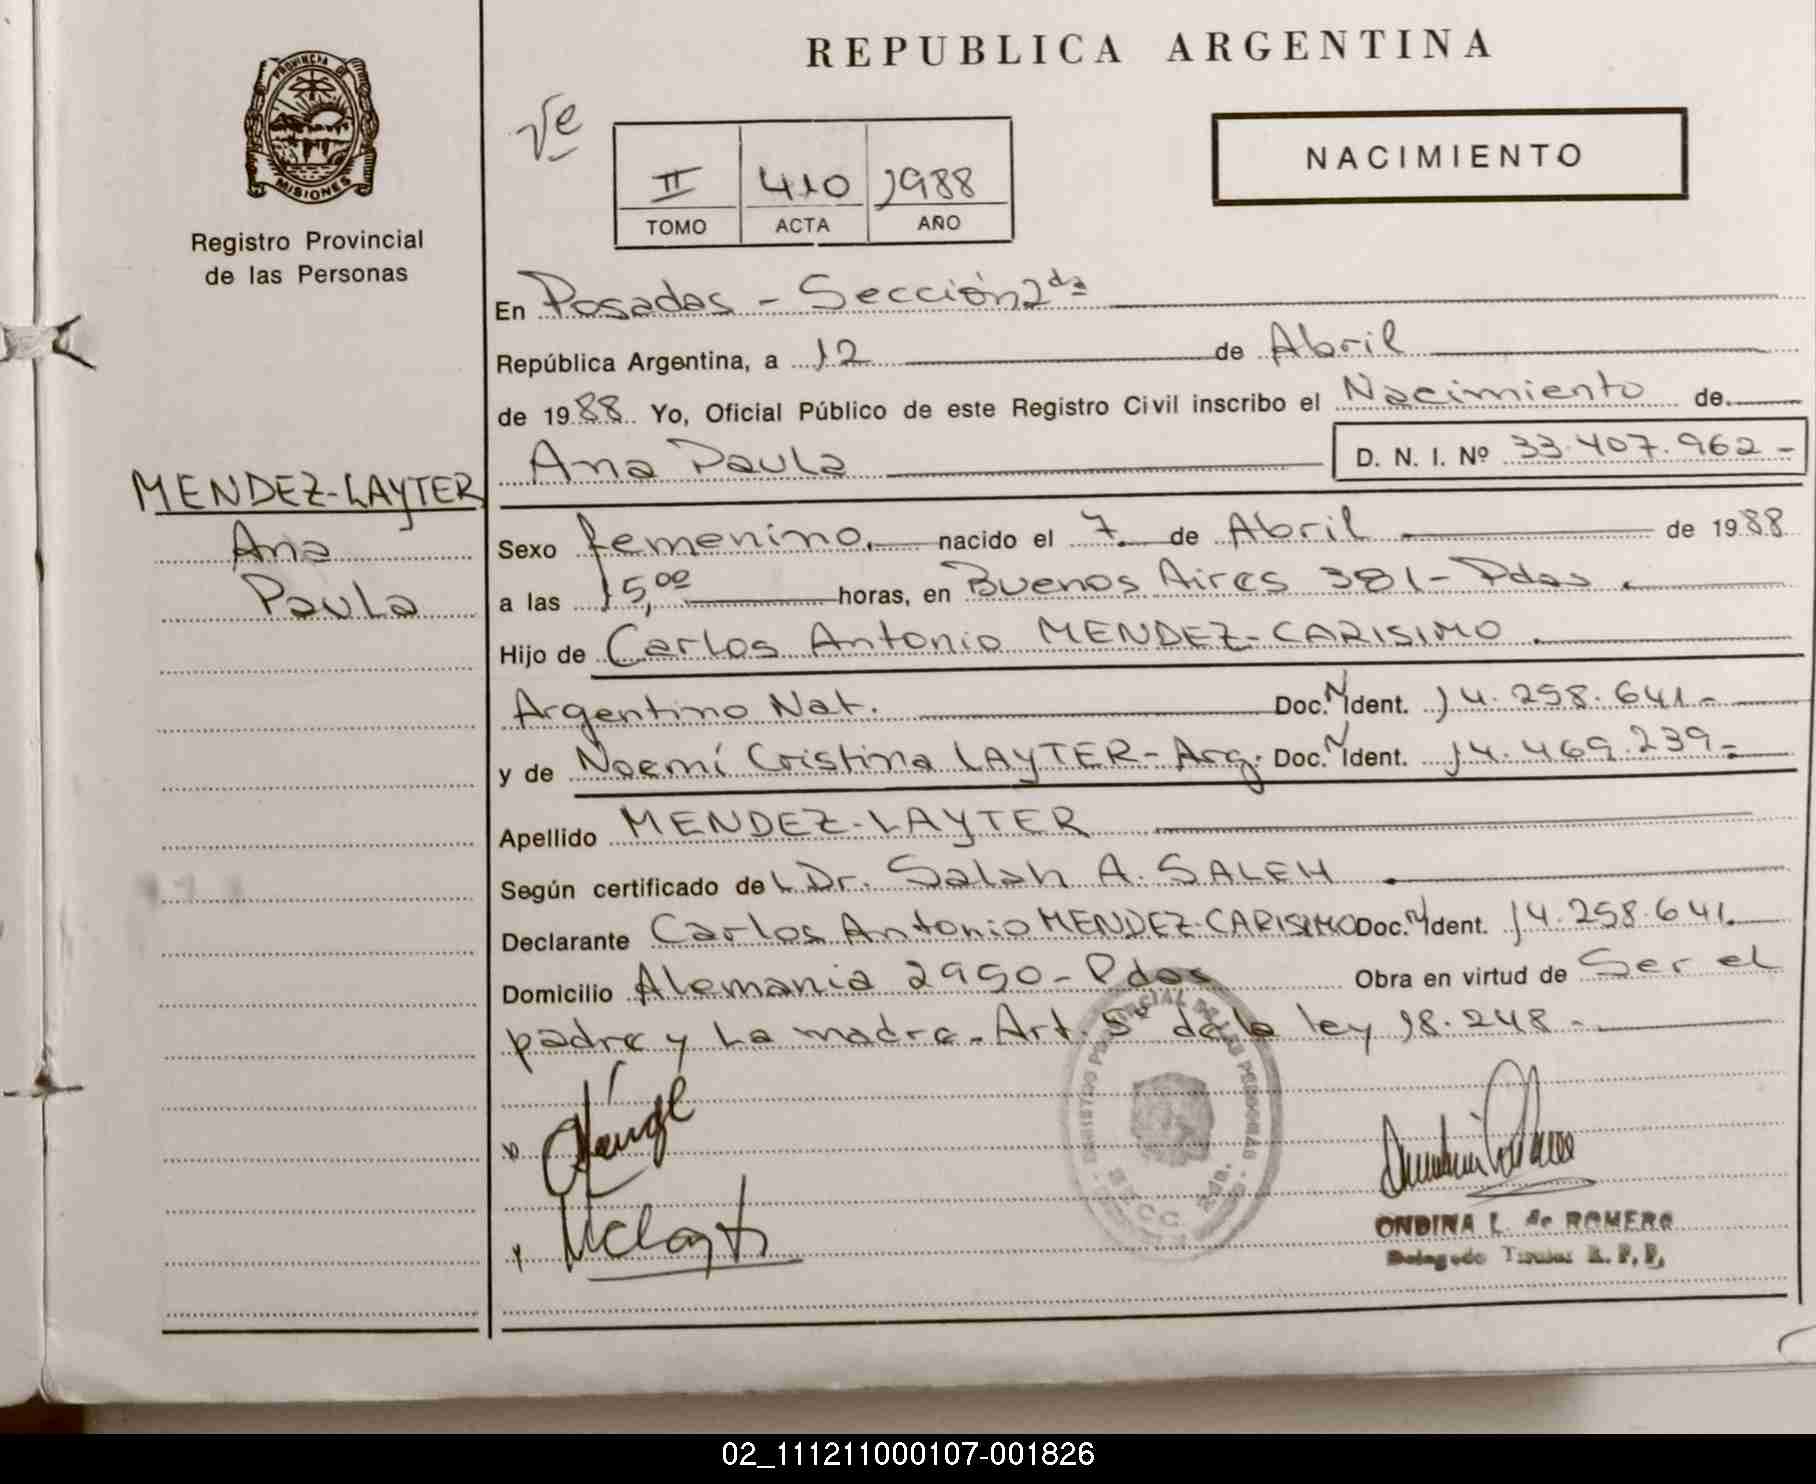 REPUBLICA ARGENTINA
PROVINCIA DE
MISIONES
Registro Provincial
de las Personas
II 410 1988
TOMO ACTA AÑO
NACIMIENTO
En Posadas - Sección 2da
República Argentina, a 12 de Abril
de 1988 Yo, Oficial Público de este Registro Civil inscribo el Nacimiento de
Ana Paula D. N. I. Nº 33.407.962-
MENDEZ-LAYTER
Ana
Paula
Sexo femenino. nacido el 7 de Abril de 1988
a las 15,00 horas, en Buenos Aires 381 - Pdas.
Hijo de Carlos Antonio MENDEZ-CARISIMO.
Argentino Nat. Doc. N Ident. 14.258.641.-
y de Noemí Cristina LAYTER - Arg. Doc. N Ident. 14.469.239.-
Apellido MENDEZ-LAYTER
Según certificado del Dr. Salah A. SALEH
Declarante Carlos Antonio MENDEZ-CARISIMO Doc. N Ident. 14.258.641.
Domicilio Alemania 2950 - Pdas Obra en virtud de Ser el
padre y la madre. Art. 5º de la ley 18.248.-
REGISTRO PROVINCIAL DE LAS PERSONAS
SECC. 2da.
ONDINA L. de ROMERO
Delegado Titular R. P. P.
02_111211000107-001826